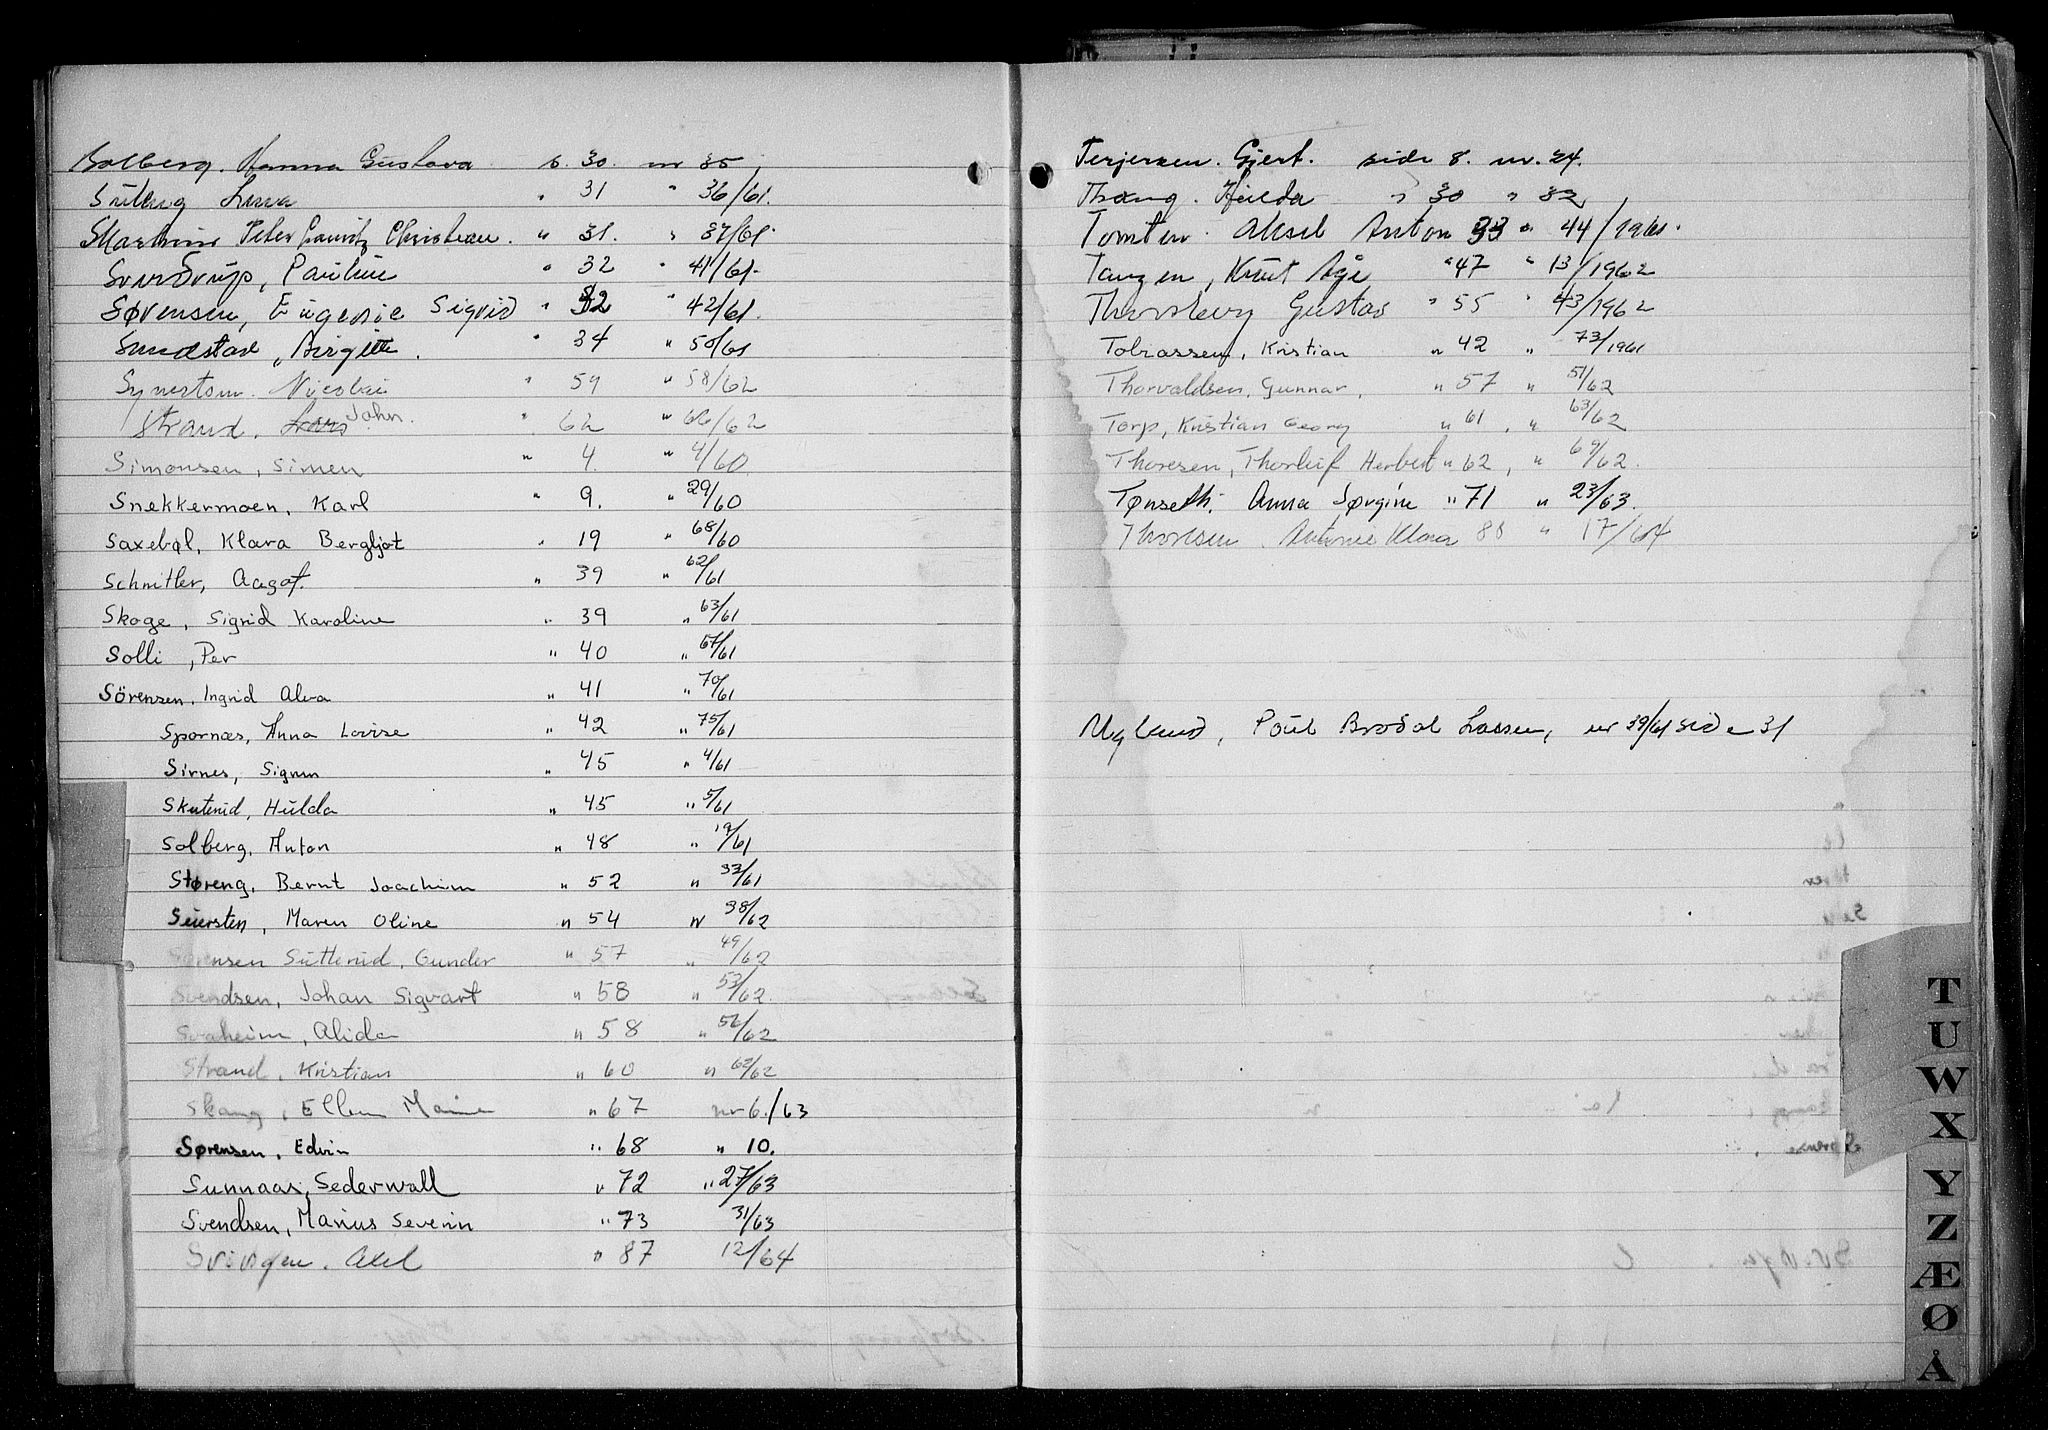 Solberg. Hanna Gustava s. 30. nr 35
Luva " 31 " 36/61.
Peter Lauritz Christean. " 31. " 37/61.
Sverdrup, Pauline " 32 " 41/61.
Sørensen, Eugenie Sigrid " 32 " 42/61.
Sundstad, Birgitte. " 34 " 50/61
Nicolai " 59 " 58/62
Strand. Lars John. " 62 " 66/62
Simonsen, Simen " 4. " 4/60
Snekkermoen, Karl " 9. " 29/60
Saxebøl, Klara Bergljot " 19 " 68/60
Schnitler, Aagot. " 39 " 62/61
Skoge, Sigrid Karoline " 39 " 63/61
Solli, Per " 40 " 67/61
Sörensen, Ingrid Alva " 41 " 70/61
Spornæs, Anna Lovise " 42 " 75/61
Sirnes, Signun " 45 " 4/61
Skuterud, Hulda " 45 " 5/61
Solberg, Anton " 48 " 19/61
Støreng, Bernt Joachim " 52 " 33/61
Seiersten, Maren Oline " 54 " 38/62
Sørensen Sutterud, Gunder " 57 " 49/62
Svendsen, Johan Sigvart " 58 " 53/62.
Svaheim, Alida " 58 " 56/62
Strand, Kristian " 60 " 62/62
Skaug, Ellen Marie " 67 nr 6./63
Sørensen, Edvin " 68 " 10.
Sunnaas, Sederwall " 72 " 27/63
Svendsen, Marius Severin " 73 31/63
Svingen. Axel " 87 12/64
Terjersen. Gjert. side 8. nr. 24.
Thoeng. Hulda " 30 " 32
Tomter. Aksel Anton 33 " 44/1961.
Tangen, Knut Åge " 47 " 13/1962
Thorsberg Gustav " 55 " 43/1962
Tobiassen, Kristian " 42 " 73/1961
Thorvaldsen, Gunnar, " 57 " 51/62
Torp, Kristian Georg " 61, " 63/62
Thoresen, Thorleif Herbert " 62, " 69/62.
Tønseth. Anna Jørgine " 71 " 23/63.
Thorsen. Antonie Klara 88 " 17/64
Ugland, Poul Brodal Lassen, nr 39/61 side 31
T
U
W
X
Y
Z
Æ
Ø
Å